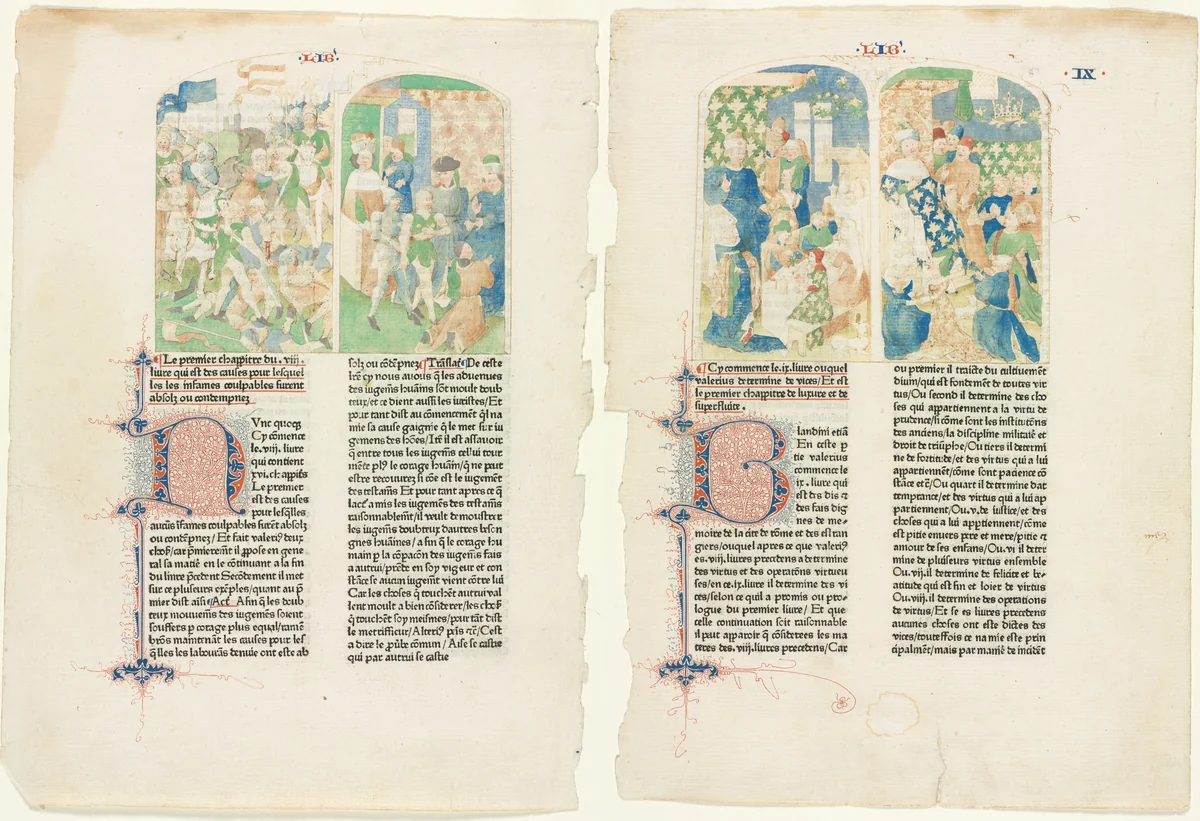 ·LIB'
Le premier chappitre du. viij.
liure qui est des causes pour lesquel
les les infames coulpables furent
absolz ou contempnez
Vnc quoqz
Cy cōmence
le. viij. liure
qui contient
xvi. chappits
Le premier
est des causes
pour lesq̄lles
aucūs īfames coulpables furēt absolz
ou condēpnez/ Et fait valeri9 deux
choses/car p̄mieremēt il ppose en gene
ral sa matiē en le continuant a la fin
du liure p̄cedent Secōdement il met
sur ce plusieurs exēples/quant au p̄
mier dist aīsi Act̄. Afin q̄ les doub
teux mouuemēs des iugemēs soient
souffers p corage plus equal/ramē
brōs maintenāt les causes pour les
q̄lles les labourās denuie ont este ab
solz ou cōdēpnez Trāslat̄ De ceste
lr̄e cy nous auōs q̄ les aduenues
des iugemēs huaīns sōnt moult doub
teux/et ce dient aussi les iuristes/Et
pour tant dist au cōmencemēt q̄l na
mie sa cause gaignie q̄ le met sur iu
gemens des hōes/Itē il est assauoir
q̄ entre tous les iugemēs cellui tour
mēte pl9 le corage huaīn/q̄ ne puet
estre recouurez si cōe est le iugement
des testamēs Et pour tant apres ce q̄
lacē a mis les iugemēs des testamēs
raisonnablemēt/il veult demoustrer
les iugemēs doubteux dautres beson
gnes huaīnes/ a fin q̄ le corage hu
main p la cōpacōn des iugemēs fais
a autrui/prēde en soy vigeur et con
stāce se aucun iugemēt vient cōtre lui
Car les choses q̄ touchēt autrui val
lent moult a bien cōsiderer/les choses
q̄ touchēt soy meismes/pour tāt dist
le metrifieur/Alteri9 pn̄s cē/Cest
a dire le p̄ūbe cōmun/ Aise se castie
qui par autrui se castie
·LIB'
·IX·
Cy commence le.ix.liure ouquel
valerius determine de vices/Et est
le premier chappitre de luxure et de
superfluite.
landini etiā
En ceste p
tie valerius
commence le
ix. liure qui
est des dis et
des fais dig
nes de me-
moire de la cite de rōme et des estran
giers/ouquel apres ce que valeri9
es.viij.liures precedens a determine
des virtus et des operatōns virtueu
ses/en ce.ix.liure il determine des vi
ces/selon ce quil a promis ou pro-
logue du premier liure/ Et que
celle continuation soit raisonnable
il puet apparoir q̄ cōsiderees les ma
teres des.viij.liures precedens/Car
ou premier il traicte du cultiuement
diuin/qui est fondement de toutes vir
tus/Ou second il determine des cho
ses qui appartiennent a la virtu de
prudence/si cōme sont les institutōs
des anciens/la discipline militaire et
droit de triūphe/Ou tiers il determi
ne de fortitude/et des virtus qui a lui
appartiennēt/cōme sont pacience cō
stāce etc̄/Ou quart il determine dat
temprance/et des virtus qui a lui ap
partiennent/Ou.v.de iustice/et des
choses qui a lui apptiennent/cōme
est pitie enuers pere et mere/pitie et
amour de ses enfans/Ou.vi il deter
mine de pluseurs virtus ensemble
Ou.vij.il determine de felicite et be-
atitude qui est fin et loier de virtus
Ou.viij.il determine des operations
de virtus/Et se es liures precedens
aucunes choses ont este dictes des
vices/touteffois ce na mie este prin
cipalmēt/mais par maniē de incidēt